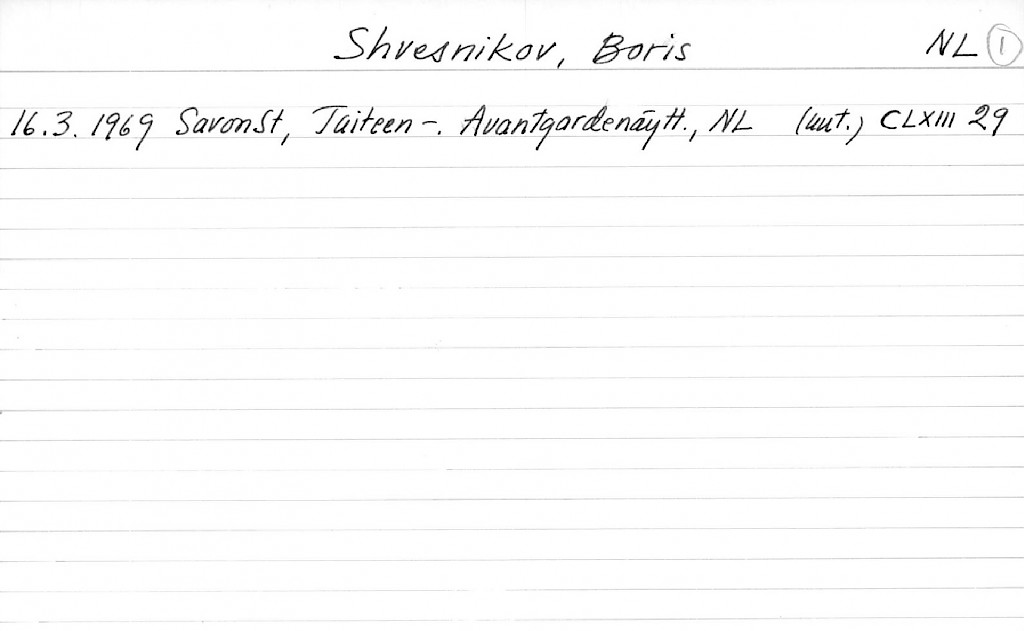 Shvesnikov, Boris NL 1
16.3.1969 SavonSt, Taiteen -. Avantgardenäytt., NL (uut.) CLXIII 29